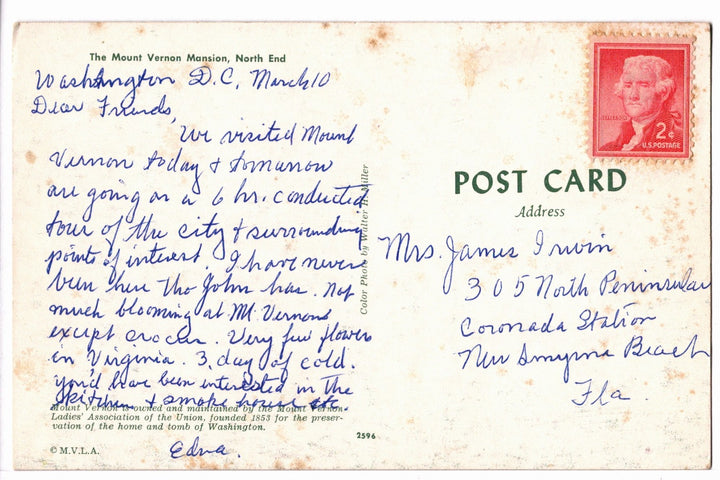 The Mount Vernon Mansion, North End
Washington D.C, March 10
Dear Friends,
We visited Mount
Vernon today & tomorrow
are going on a 6 hr. conducted
tour of the city & surrounding
points of interest. I have never
been here tho John has. Not
much blooming at Mt. Vernon
except crocus. Very few flowers
in Virginia. 3 day of cold.
You'd have been interested in the
kitchen & smoke house etc.
Mount Vernon is owned and maintained by the Mount Vernon
Ladies' Association of the Union, founded 1853 for the preser-
vation of the home and tomb of Washington.
Edna.
© M.V.L.A.
2596
Color Photo by Walter H. Miller
JEFFERSON
2¢
U.S. POSTAGE
POST CARD
Address
Mrs. James Irwin
305 North Peninsular
Coronada Station
New Smyrna Beach
Fla.